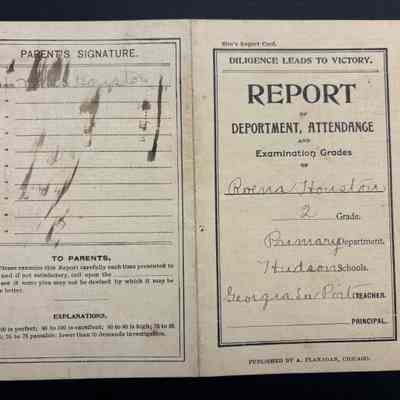 PARENT'S SIGNATURE.
Houston
TO PARENTS,
Please examine this Report carefully each time presented to
and if not satisfactory, call upon the
case some plan may not be devised by which it may be
better.
EXPLANATIONS.
100 is perfect; 90 to 100 is excellent; 80 to 90 is high; 75 to 80
70 to 75 passable; lower than 70 demands investigation.
Rice's Report Card.
DILIGENCE LEADS TO VICTORY.
REPORT
OF
DEPORTMENT, ATTENDANCE
AND
Examination Grades
OF
Roena Houston
2 Grade.
Primary Department.
Hudson Schools.
Georgia La Port TEACHER.
PRINCIPAL.
PUBLISHED BY A. FLANAGAN, CHICAGO.